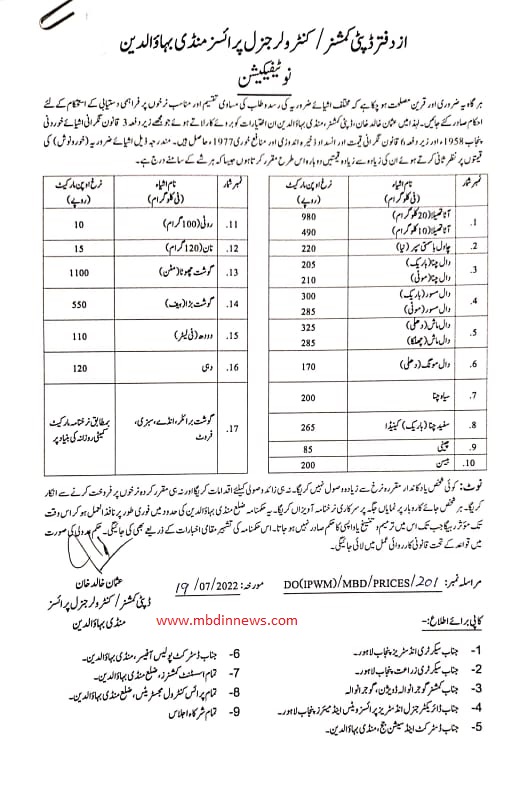 از دفتر ڈپٹی کمشنر / کنٹرولر جنرل پرائسز منڈی بہاؤالدین
نوٹیفیکیشن
ہر گاہ یہ ضروری اور قرین مصلحت ہو چکا ہے کہ مختلف اشیائے ضروریہ کی رسد و طلب کی مساوی تقسیم اور مناسب نرخوں پر فراہمی دستیابی کے استحکام کے لئے
احکام صادر کئے جائیں۔ لہذا میں عثمان خالد خان، ڈپٹی کمشنر، منڈی بہاؤالدین ان اختیارات کو بروئے کار لاتے ہوئے جو مجھے زیر دفعہ 3 قانون نگرانی اشیائے خوردنی
پنجاب 1958ء اور زیر دفعہ 6 قانون نگرانی قیمت اور انسداد ذخیرہ اندوزی اور منافع خوری 1977ء حاصل ہیں۔ مندرجہ ذیل اشیائے ضروریہ (خوردونوش) کی
قیمتوں پر نظر ثانی کرتے ہوئے ان کی زیادہ سے زیادہ قیمتیں دوبارہ اس طرح مقرر کرتا ہوں جیسا کہ ہر شے کے سامنے درج ہے۔
نمبر شمار نام اشیاء (فی کلوگرام) نرخ اوپن مارکیٹ (روپے)
1. آٹا تھیلا (20 کلوگرام) 980
آٹا تھیلا (10 کلوگرام) 490
2. چاول باسمتی سپر (نیا) 220
3. دال چنا (باریک) 205
دال چنا (موٹی) 210
4. دال مسور (باریک) 300
دال مسور (موٹی) 285
5. دال ماش (دھلی) 325
دال ماش (چھلکا) 285
6. دال مونگ (دھلی) 170
7. سیاہ چنا 200
8. سفید چنا (باریک) کینیڈا 265
9. چینی 85
10. بیسن 200
نمبر شمار نام اشیاء (فی کلوگرام) نرخ اوپن مارکیٹ (روپے)
11. روٹی (100 گرام) 10
12. نان (120 گرام) 15
13. گوشت چھوٹا (مٹن) 1100
14. گوشت بڑا (بیف) 550
15. دودھ (فی لیٹر) 110
16. دہی 120
17. گوشت برائلر، انڈے، سبزی، فروٹ بمطابق نرخنامہ مارکیٹ کمیٹی روزانہ کی بنیاد پر
نوٹ: کوئی شخص یا دکاندار مقررہ نرخ سے زیادہ وصول نہیں کریگا۔ نہ ہی زائد وصولی کیلئے اقدامات کریگا اور نہ ہی مقرر کردہ نرخوں پر فروخت کرنے سے انکار
کریگا۔ ہر شخص جائے کاروبار پر نمایاں جگہ پر سرکاری نرخنامہ آویزاں کریگا۔ یہ حکمنامہ ضلع منڈی بہاؤالدین کی حدود میں فوری طور پر نافذ العمل ہو کر اس وقت
تک مؤثر رہیگا جب تک اس میں ترمیم و تنسیخ یا واپسی کا حکم صادر نہیں ہو جاتا۔ اس حکمنامہ کی تشہیر مقامی اخبارات کے ذریعے بھی کی جائیگی۔ حکم عدولی کی صورت
میں قواعد کے تحت قانونی کارروائی عمل میں لائی جائیگی۔
عثمان خالد خان
ڈپٹی کمشنر / کنٹرولر جنرل پرائسز
منڈی بہاؤالدین
مراسلہ نمبر: DO(IPWM)/MBD/PRICES/201 مورخہ: 19/07/2022
www.mbdinnews.com
کاپی برائے اطلاع:-
1- جناب سیکرٹری انڈسٹریز پنجاب لاہور۔
2- جناب سیکرٹری زراعت پنجاب لاہور۔
3- جناب کمشنر گوجرانوالہ ڈویژن، گوجرانوالہ
4- جناب ڈائریکٹر جنرل انڈسٹریز پرائسز ویٹس اینڈ میئرز پنجاب لاہور۔
5- جناب ڈسٹرکٹ اینڈ سیشن جج، منڈی بہاؤالدین۔
6- جناب ڈسٹرکٹ پولیس آفیسر، منڈی بہاؤالدین۔
7- تمام اسسٹنٹ کمشنرز، ضلع منڈی بہاؤالدین۔
8- تمام پرائس کنٹرول مجسٹریٹس، ضلع منڈی بہاؤالدین۔
9- تمام شرکاء اجلاس